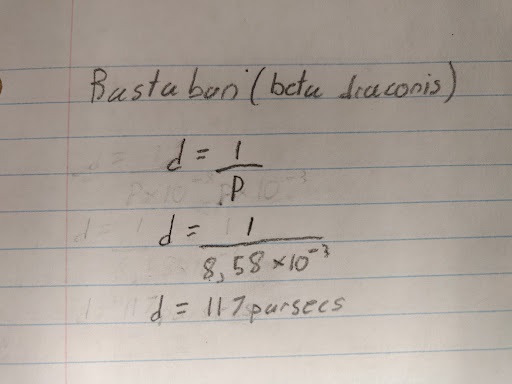 Bastaban (beta draconis)
d = 1/P
d = 1/8,58 × 10⁻³
d = 117 parsecs